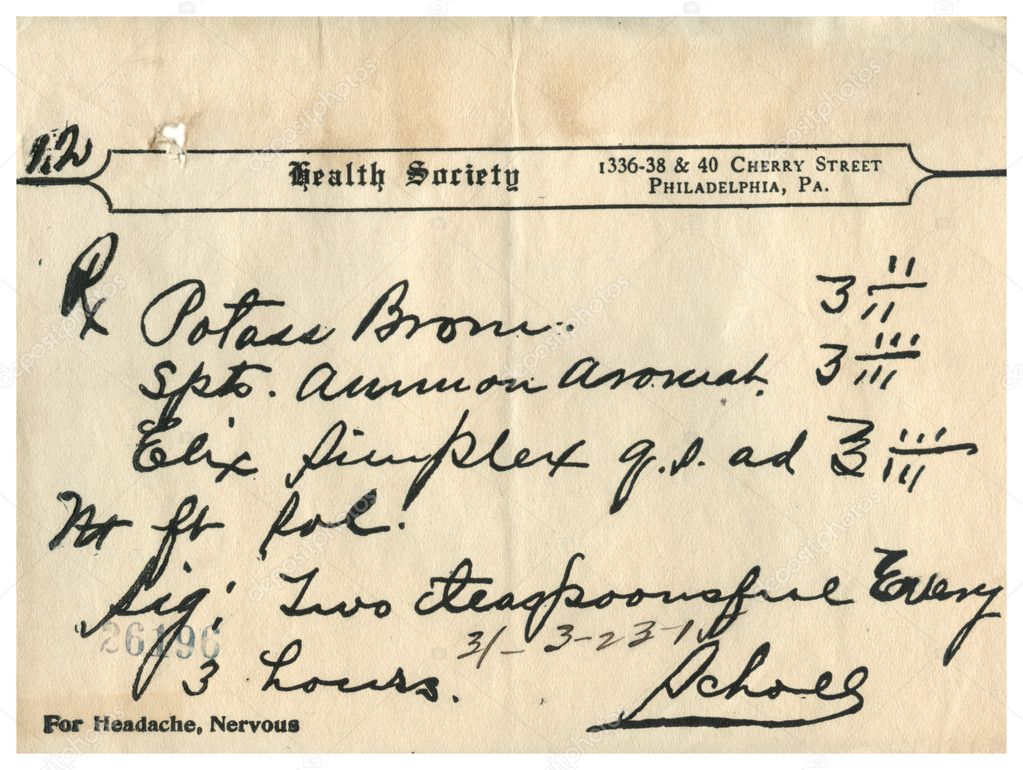 12
Health Society 1336-38 & 40 Cherry Street
Philadelphia, Pa.
Rx
Potass Brom. ʒ ii
Spts. Ammon Aromat. ʒ iii
Elix Simplex q.s. ad ℥ iii
M ft Sol.
Sig: Two teaspoonsful Every
26196
3 hours.
Scholl
For Headache, Nervous